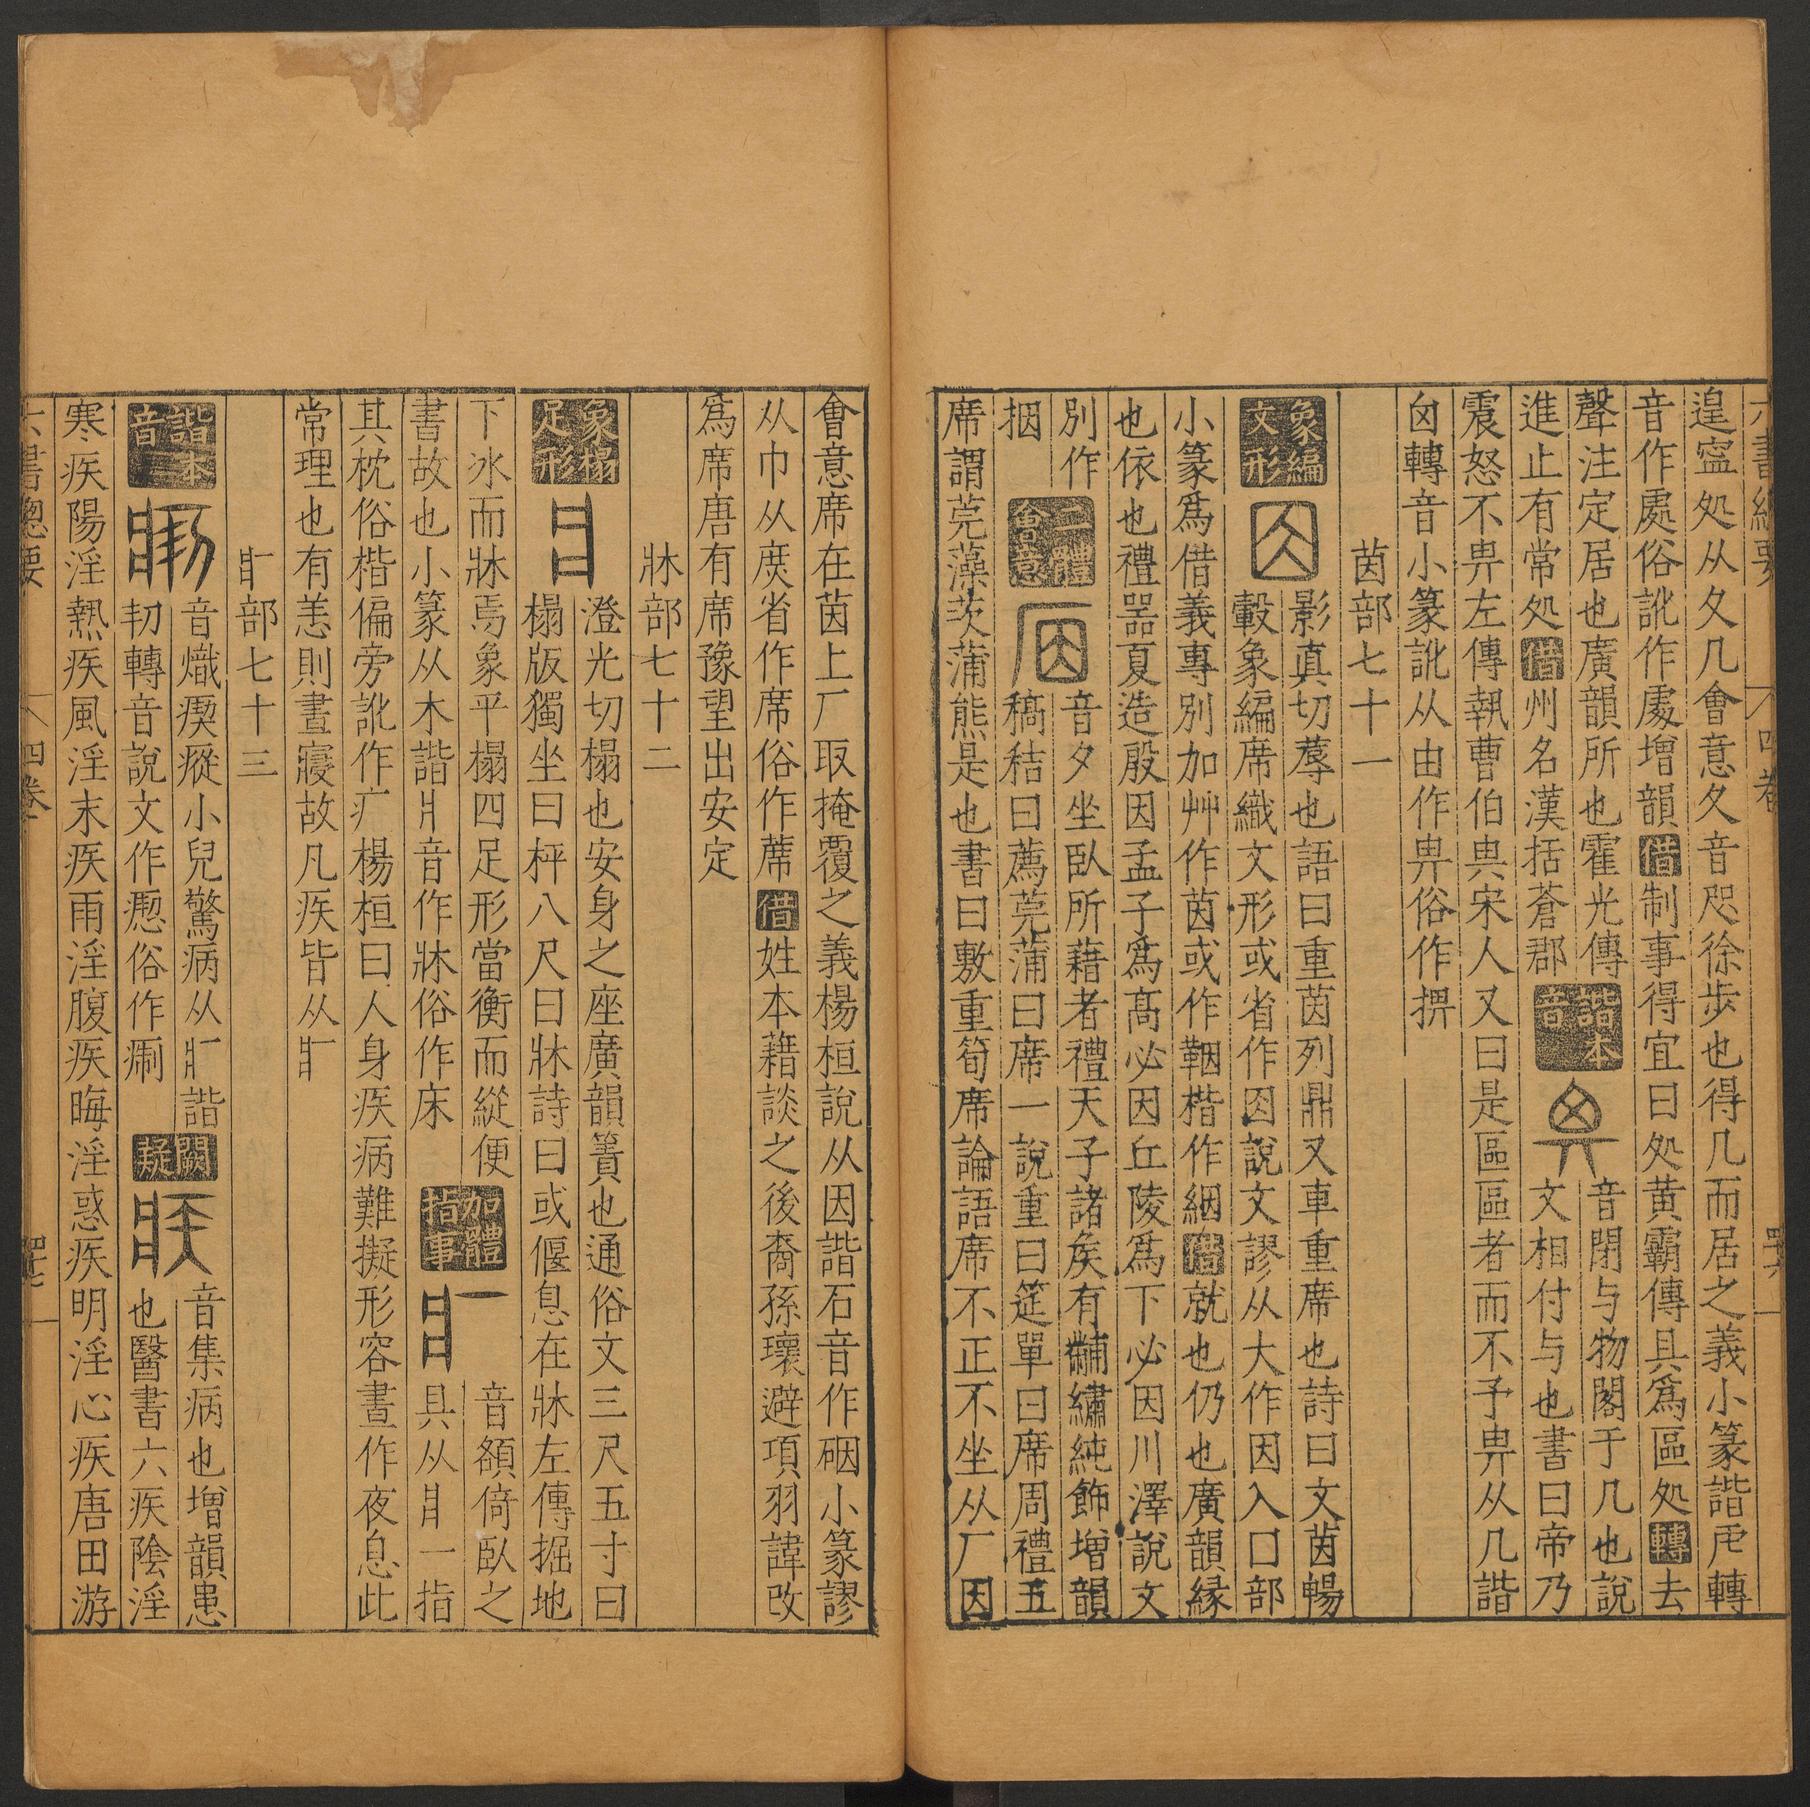 六書總要 四卷 四十六
遑寍処从夂几會意夂音怨徐步也得几而居之義小篆諧虍轉
音作處俗訛作䖏增韻借制事得宜曰処黃霸傳具為區処轉去
聲注定居也廣韻所也霍光傳
進止有常処借州名漢括蒼郡
諧本音
音閉与物閣于几也說
文相付与也書曰帝乃
震怒不畀左傳執曹伯畁宋人又曰是區區者而不予畀从几諧
囟轉音小篆訛从由作畀俗作㨽
茵部七十一
象編文形
影真切蓐也語曰重茵列鼎又車重席也詩曰文茵暢
轂象編席織文形或省作因說文謬从大作因入囗部
小篆爲借義專別加艸作茵或作鞇楷作絪借就也仍也廣韻緣
也依也禮噐夏造殷因孟子爲髙必因丘陵爲下必因川澤說文
別作
捆
二體會意
音夕坐臥所藉者禮天子諸矦有黼繡純飾增韻
稿秸曰薦莞蒲曰席一說重曰筵單曰席周禮五
席謂莞藻茨蒲熊是也書曰敷重筍席論語席不正不坐从厂因
會意席在茵上厂取掩覆之義楊桓說从因諧石音作䂩小篆謬
从巾从庶省作席俗作蓆借姓本藉談之後裔孫瓌避項羽諱改
爲席唐有席豫望出安定
牀部七十二
象榻足形
澄光切榻也安身之座廣韻簀也通俗文三尺五寸曰
榻版獨坐曰枰八尺曰牀詩曰或偃息在牀左傳掘地
下冰而牀焉象平榻四足形當衡而縱便
書故也小篆从木諧爿音作牀俗作床
加體指事
音額倚臥之
具从爿一指
其枕俗楷偏旁訛作疒楊桓曰人身疾病難擬形容晝作夜息此
常理也有恙則晝寢故凡疾皆从疒
疒部七十三
諧本音
音熾瘈瘲小兒驚病从疒諧
㓞轉音說文作瘛俗作痸
闕疑
音集病也增韻患
也醫書六疾陰淫
寒疾陽淫熱疾風淫末疾雨淫腹疾晦淫惑疾明淫心疾唐田游
六書總要 四卷 四十七